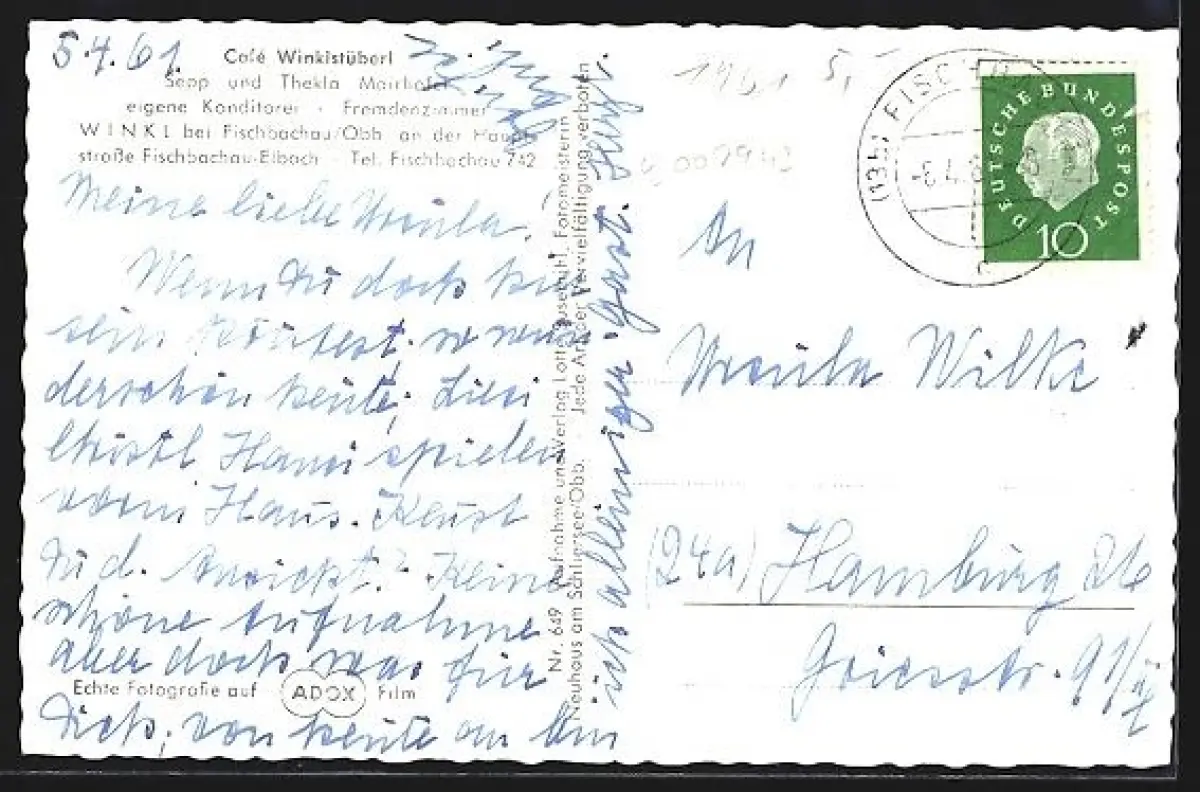 5.4.61.
Café Winklstüberl
Sepp und Thekla Mairhofer
eigene Konditorei · Fremdenzimmer
WINKL bei Fischbachau/Obb. an der Haupt-
straße Fischbachau-Elbach - Tel. Fischbachau 742
Meine liebe Ursula,
Wenn Du doch hier
sein könntest. so wun
derschön heute;
Christl Hansi spielen
vorm Haus. Kennst
Du d. Ansicht? Keine
schöne Aufnahme
aber doch was für
Dich; von heute an bin
ich alleiniger Gast.
Echte Fotografie auf ADOX Film
Nr. 649 Aufnahme und Verlag Lotte Fotomeisterin
Neuhaus am Schliersee/Obb. Jede Art der Vervielfältigung verboten
1961
5,-
(13b) FISCHB
-6.4.6
DEUTSCHE BUNDESPOST
10
An
Ursula Wilke
(24a) Hamburg 26
Griesstr. 91/